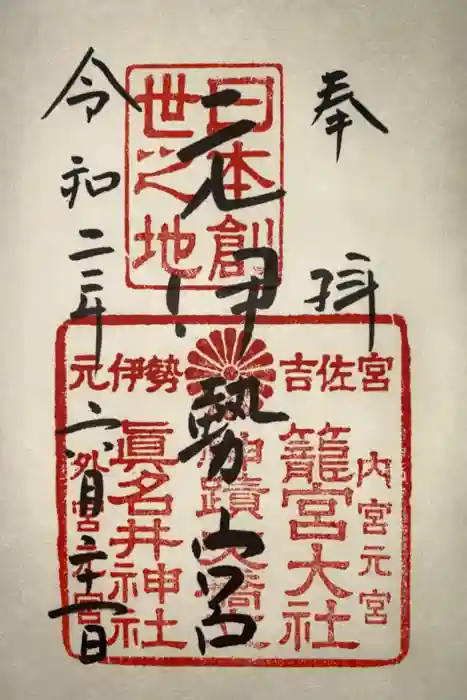 奉拝
日本創
世之地
元伊勢宮
吉佐宮
元伊勢
内宮元宮
籠宮大社
神蹟
眞名井神社
外宮元宮
令和
年
六月
日